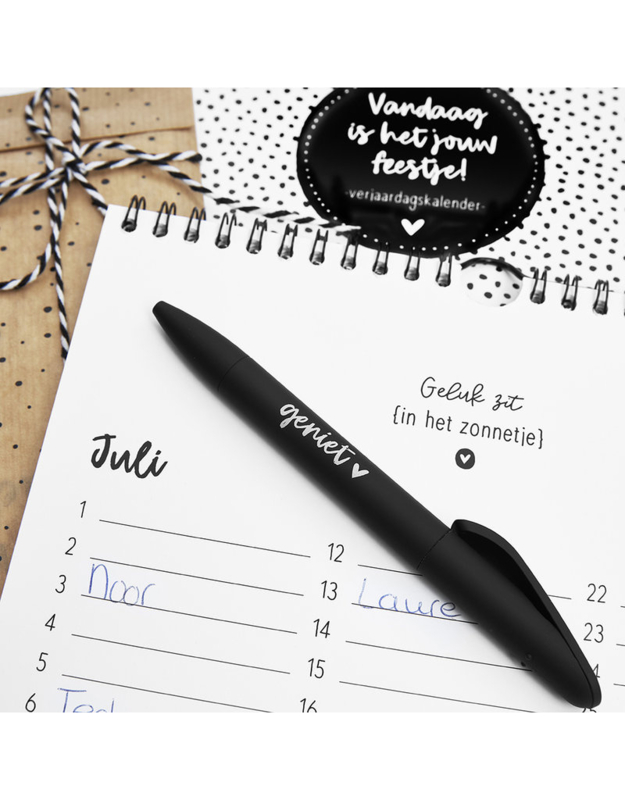 Vandaag
is het jouw
feestje!
-verjaardagskalender-
Geluk zit
{in het zonnetje}
geniet
Juli
1
2
3 Noor
4
5
6
12
13 Laure
14
15
16
22
23